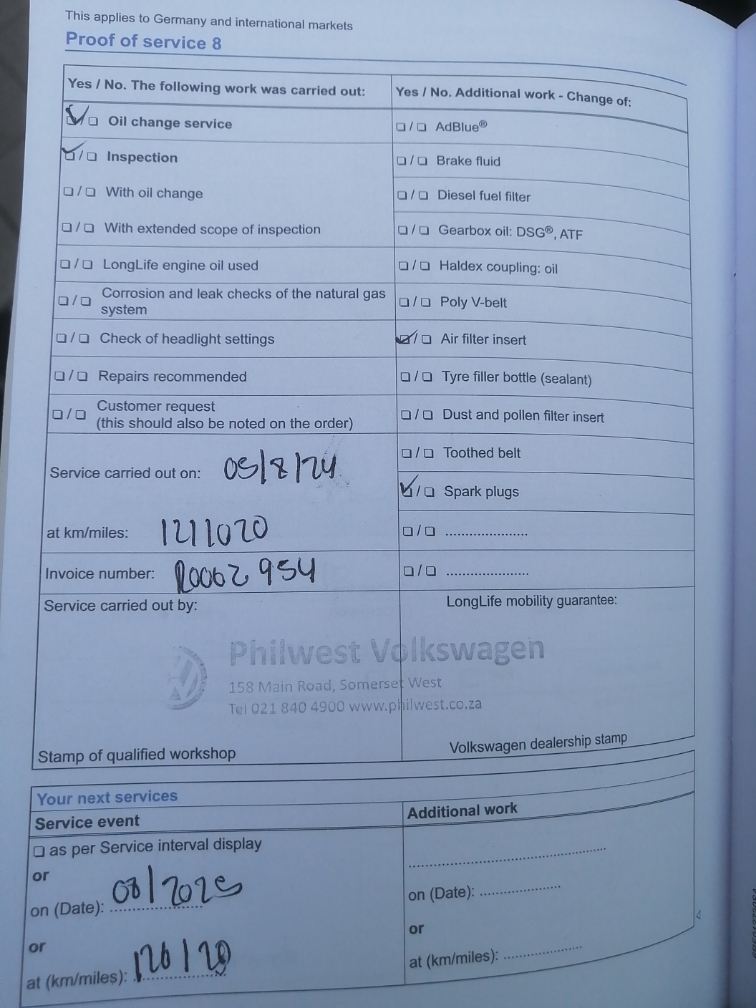 This applies to Germany and international markets
Proof of service 8
Yes / No. The following work was carried out:
☑/☐ Oil change service
☑/☐ Inspection
☐/☐ With oil change
☐/☐ With extended scope of inspection
☐/☐ LongLife engine oil used
☐/☐ Corrosion and leak checks of the natural gas
system
☐/☐ Check of headlight settings
☐/☐ Repairs recommended
☐/☐ Customer request
(this should also be noted on the order)
Service carried out on: 05/8/24
at km/miles: 1211020
Invoice number: R0062954
Yes / No. Additional work - Change of:
☐/☐ AdBlue®
☐/☐ Brake fluid
☐/☐ Diesel fuel filter
☐/☐ Gearbox oil: DSG®, ATF
☐/☐ Haldex coupling: oil
☐/☐ Poly V-belt
☑/☐ Air filter insert
☐/☐ Tyre filler bottle (sealant)
☐/☐ Dust and pollen filter insert
☐/☐ Toothed belt
☑/☐ Spark plugs
☐/☐ .....................
☐/☐ .....................
Service carried out by:
LongLife mobility guarantee:
Philwest Volkswagen
158 Main Road, Somerset West
Tel 021 840 4900 www.philwest.co.za
Stamp of qualified workshop
Volkswagen dealership stamp
Your next services
Service event
☐ as per Service interval display
or
on (Date): 08/2025
or
at (km/miles): 126120
Additional work
..................................................
on (Date): ....................
or
at (km/miles): ....................